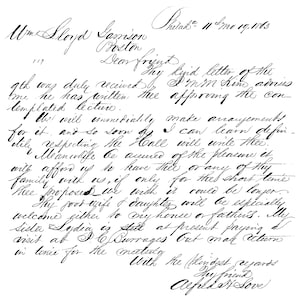 Philada. 11th mo 19, 1863
Wm Lloyd Garrison
Boston
Dear friend
Thy kind letter of the
9th was duly received & J M M Kim advises
me he has written thee approving the con-
templated lecture.
We will immediately make arrangements
for it and so soon as I can learn defin-
itely respecting the Hall will write thee
Meanwhile be assured of the pleasure it
will afford us to have thee or any of thy
family with us, if only for the short time
thee proposes, we wish it could be longer.
Thy good wife & daughter will be especially
welcome either to my house or fathers. My
sister Lydia is at present paying a
visit at J E Burrages but may return
in time for the meeting
With the kindest regards
Thy friend
Alfred H Love